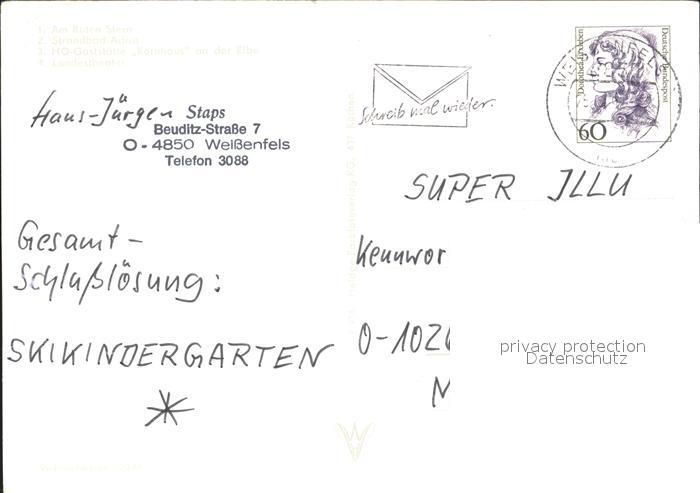 1. Am Roten Stern
2. Strandbad Adria
3. HO-Gaststätte „Kornhaus" an der Elbe
4. Landestheater
Hans-Jürgen Staps
Beuditz-Straße 7
O-4850 Weißenfels
Telefon 3088
Schreib mal wieder.
Deutsche Bundespost
60
SUPER JLLU
Kennwor
O-102
Gesamt-
Schlußlösung:
SKIKINDERGARTEN
*
privacy protection
Datenschutz